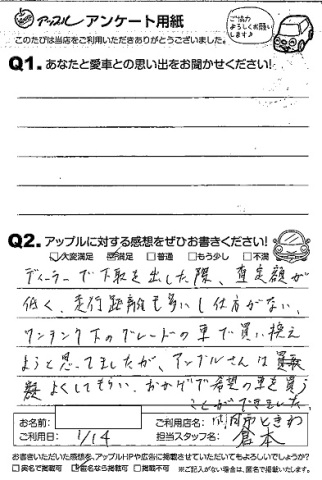 アップル アンケート用紙
ご協力
よろしくお願い
します♪
このたびは当店をご利用いただきありがとうございました。
Q1. あなたと愛車との思い出をお聞かせください!
Q2. アップルに対する感想をぜひお書きください!
□大変満足 ☑満足 □普通 □もう少し □不満
ディーラーで下取を出した際、査定額が
低く、走行距離も多いし仕方がない、
ワンランク下のグレードの車で買い換え
ようと思ってましたが、アップルさんは
よくしてもらい、おかげで希望の車を買う
ことができました。
お名前:
ご利用店名: 関南市ときわ
ご利用日: 1/14
担当スタッフ名: 倉本
お書きいただいた感想を、アップルHPや広告に掲載させていただいてもよろしいでしょうか?
□実名で掲載可 ☑匿名なら掲載可 □掲載不可 ※ご記入がない場合は、匿名で掲載いたします。